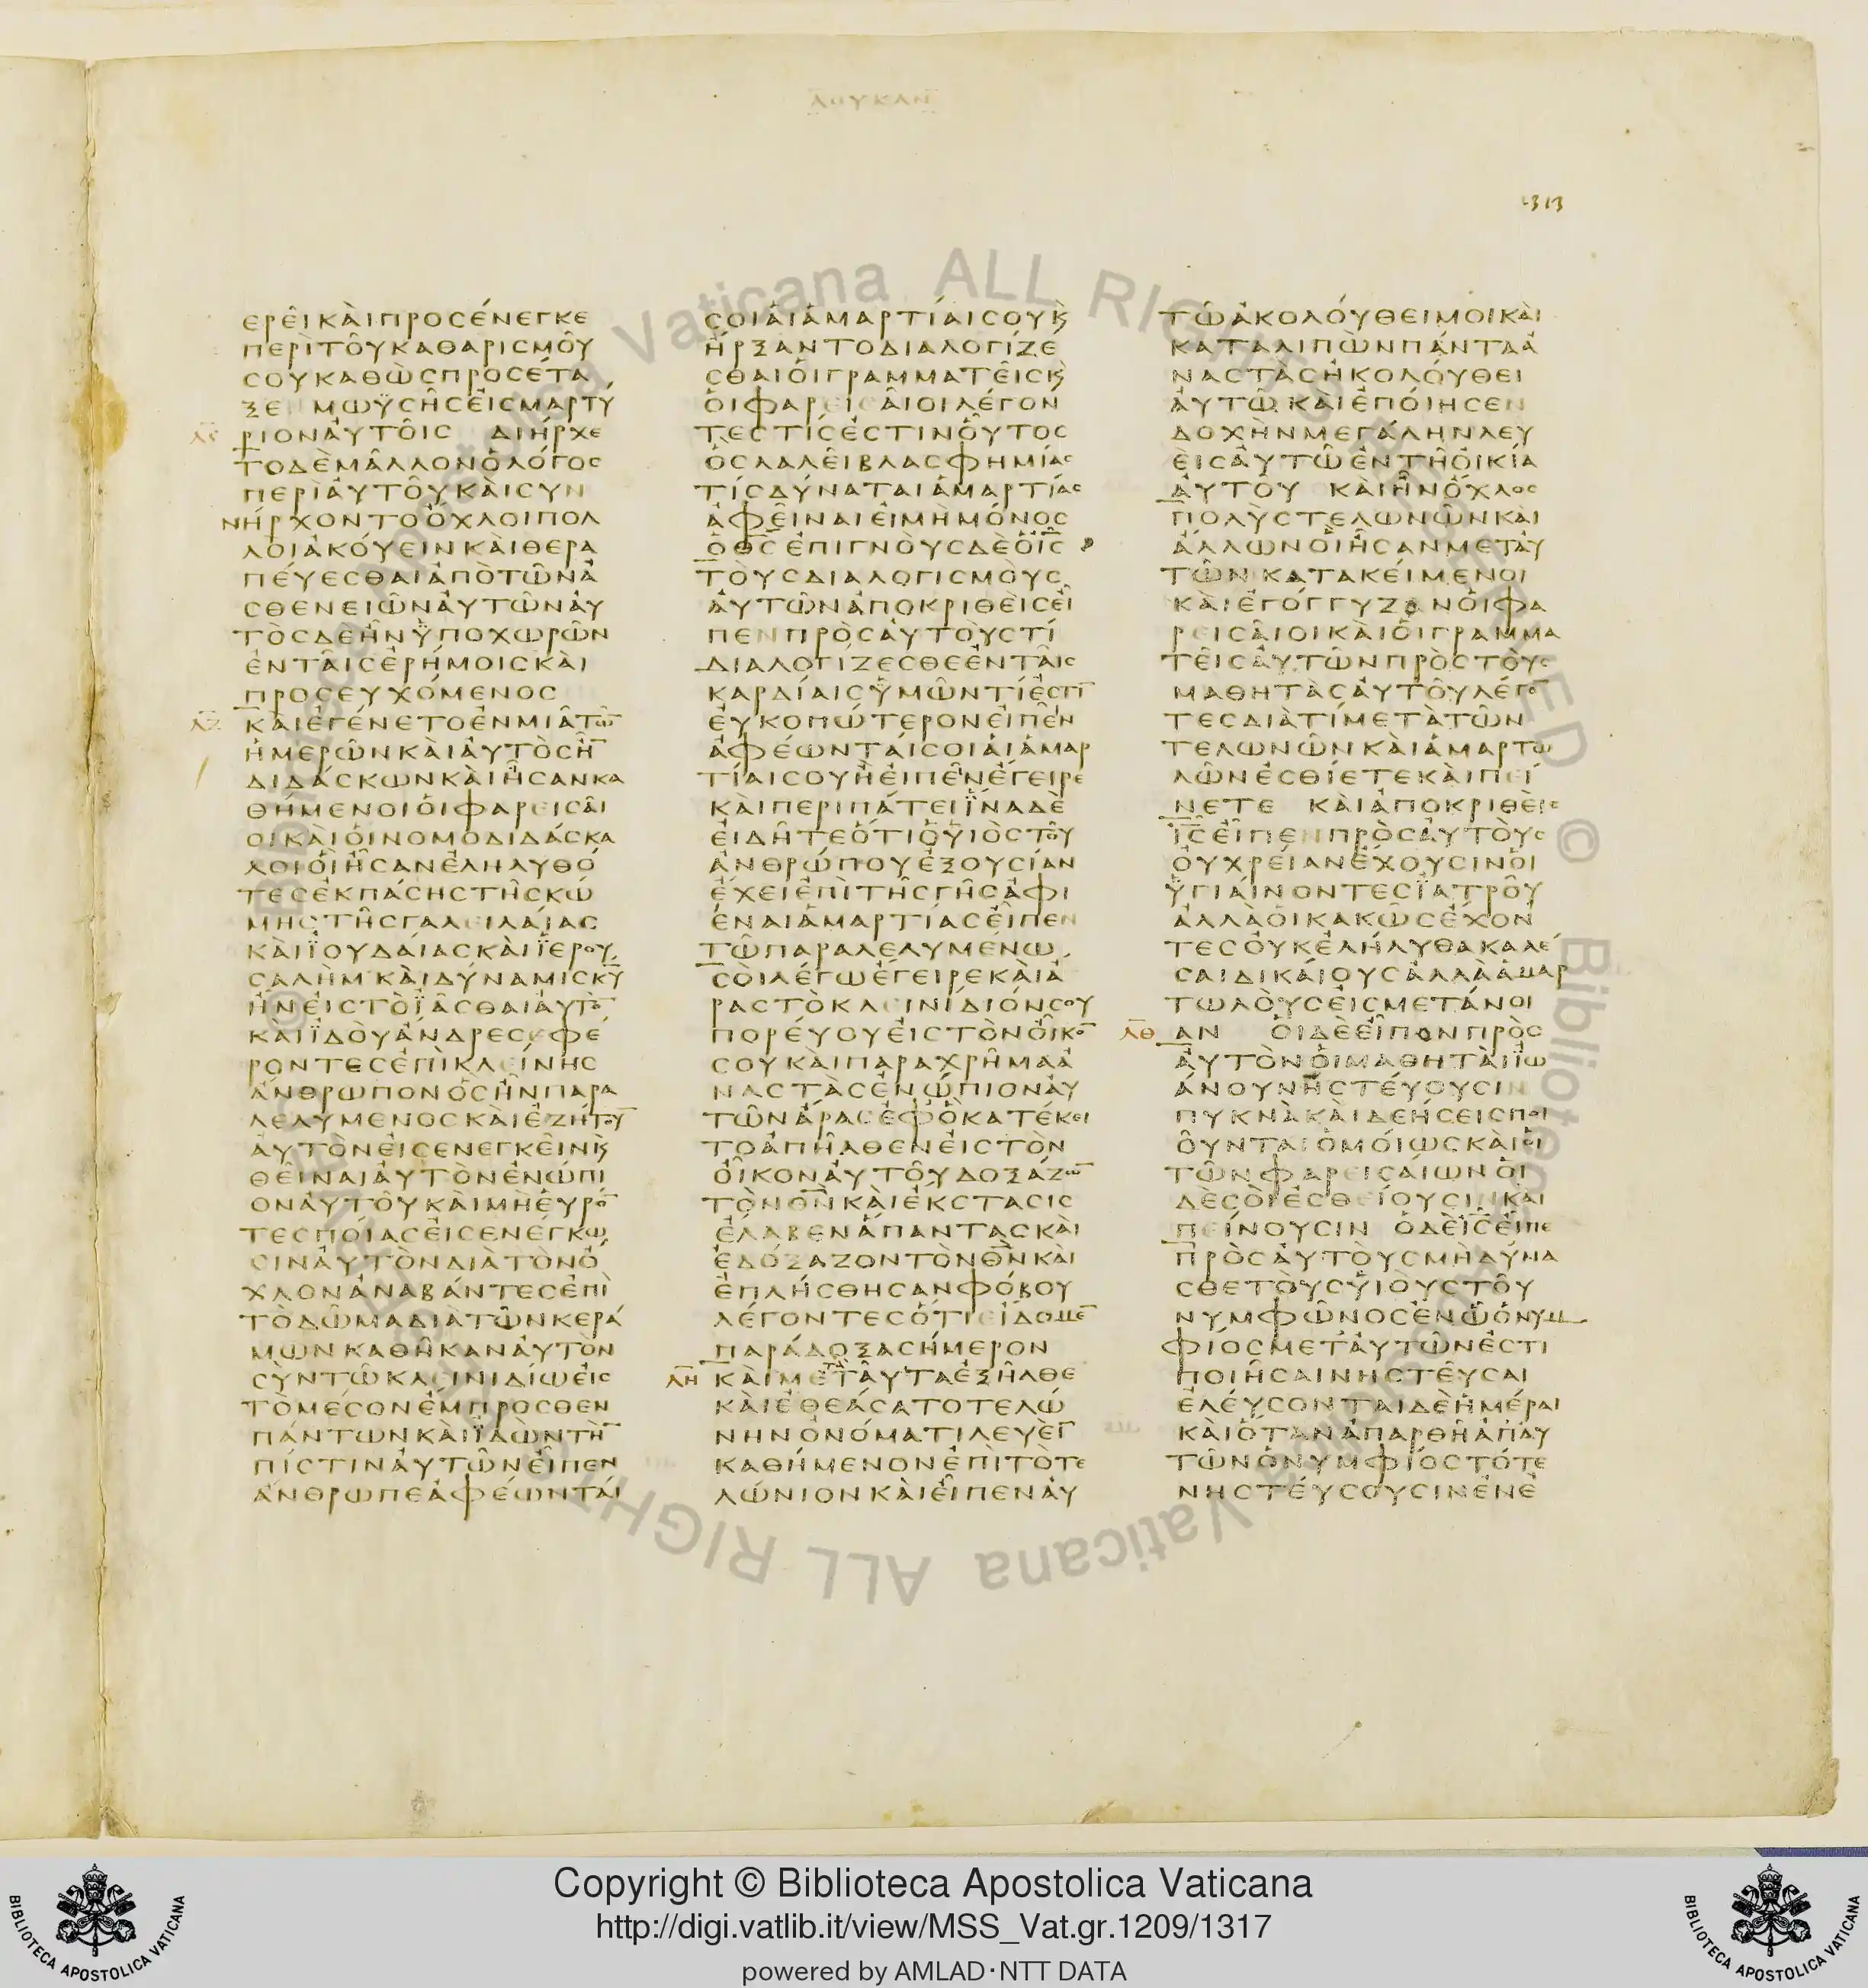 ΛΟΥΚΑΝ
1313
ΕΡΕΙΚΑΙΠΡΟΣΕΝΕΓΚΕ
ΠΕΡΙΤΟΥΚΑΘΑΡΙΣΜΟΥ
ΣΟΥΚΑΘΩΣΠΡΟΣΕΤΑ
ΞΕΝ ΜΩΥΣΗΣΕΙΣΜΑΡΤΥ
ΛϚ ΡΙΟΝΑΥΤΟΙΣ ΔΙΗΡΧΕ
ΤΟΔΕΜΑΛΛΟΝΟΛΟΓΟΣ
ΠΕΡΙΑΥΤΟΥΚΑΙΣΥΝ
ΝΗΡΧΟΝΤΟΟΧΛΟΙΠΟΛ
ΛΟΙΑΚΟΥΕΙΝΚΑΙΘΕΡΑ
ΠΕΥΕΣΘΑΙΑΠΟΤΩΝΑ
ΣΘΕΝΕΙΩΝΑΥΤΩΝΑΥ
ΤΟΣΔΕΗΝΫΠΟΧΩΡΩΝ
ΕΝΤΑΙΣΕΡΗΜΟΙΣΚΑΙ
ΠΡΟΣΕΥΧΟΜΕΝΟΣ
ΛΖ ΚΑΙΕΓΕΝΕΤΟΕΝΜΙΑΤΩ̅
ΗΜΕΡΩΝΚΑΙΑΥΤΟΣΗ̅
ΔΙΔΑΣΚΩΝΚΑΙΗΣΑΝΚΑ
ΘΗΜΕΝΟΙΟΙΦΑΡΕΙΣΑΙ
ΟΙΚΑΙΟΙΝΟΜΟΔΙΔΑΣΚΑ
ΛΟΙΟΙΗΣΑΝΕΛΗΛΥΘΟ
ΤΕΣΕΚΠΑΣΗΣΤΗΣΚΩ
ΜΗΣΤΗΣΓΑΛΕΙΛΑΙΑΣ
ΚΑΙΪΟΥΔΑΙΑΣΚΑΙΪΕΡΟΥ
ΣΑΛΗΜΚΑΙΔΥΝΑΜΙΣΚ̅Υ̅
ΗΝΕΙΣΤΟΪΑΣΘΑΙΑΥΤΟ̅
ΚΑΙΪΔΟΥΑΝΔΡΕΣΕΦΕ
ΡΟΝΤΕΣΕΠΙΚΛΕΙΝΗΣ
ΑΝΘΡΩΠΟΝΟΣΗΝΠΑΡΑ
ΛΕΛΥΜΕΝΟΣΚΑΙΕΖΗΤΟΥ̅
ΑΥΤΟΝΕΙΣΕΝΕΓΚΕΙΝϗ
ΘΕΙΝΑΙΑΥΤΟΝΕΝΩΠΙ
ΟΝΑΥΤΟΥΚΑΙΜΗΕΥΡΟ̅
ΤΕΣΠΟΙΑΣΕΙΣΕΝΕΓΚΩ
ΣΙΝΑΥΤΟΝΔΙΑΤΟΝΟ
ΧΛΟΝΑΝΑΒΑΝΤΕΣΕΠΙ
ΤΟΔΩΜΑΔΙΑΤΩΝΚΕΡΑ
ΜΩΝΚΑΘΗΚΑΝΑΥΤΟΝ
ΣΥΝΤΩΚΛΕΙΝΙΔΙΩΕΙΣ
ΤΟΜΕΣΟΝΕΜΠΡΟΣΘΕΝ
ΠΑΝΤΩΝΚΑΙΪΔΩΝΤΗ̅
ΠΙΣΤΙΝΑΥΤΩΝΕΙΠΕΝ
ΑΝΘΡΩΠΕΑΦΕΩΝΤΑΙ
ΣΟΙΑΙΑΜΑΡΤΙΑΙΣΟΥϗ
ΗΡΞΑΝΤΟΔΙΑΛΟΓΙΖΕ
ΣΘΑΙΟΙΓΡΑΜΜΑΤΕΙΣϗ
ΟΙΦΑΡΕΙΣΑΙΟΙΛΕΓΟΝ
ΤΕΣΤΙΣΕΣΤΙΝΟΥΤΟΣ
ΟΣΛΑΛΕΙΒΛΑΣΦΗΜΙΑΣ
ΤΙΣΔΥΝΑΤΑΙΑΜΑΡΤΙΑΣ
ΑΦΕΙΝΑΙΕΙΜΗΜΟΝΟΣ
ΟΘ̅Σ̅ΕΠΙΓΝΟΥΣΔΕΟΙ̅Σ̅
ΤΟΥΣΔΙΑΛΟΓΙΣΜΟΥΣ
ΑΥΤΩΝΑΠΟΚΡΙΘΕΙΣΕΙ
ΠΕΝΠΡΟΣΑΥΤΟΥΣΤΙ
ΔΙΑΛΟΓΙΖΕΣΘΕΕΝΤΑΙΣ
ΚΑΡΔΙΑΙΣΫΜΩΝΤΙΕΣΤΙ̅
ΕΥΚΟΠΩΤΕΡΟΝΕΙΠΕΙΝ
ΑΦΕΩΝΤΑΙΣΟΙΑΙΑΜΑΡ
ΤΙΑΙΣΟΥΗΕΙΠΕΙΝΕΓΕΙΡΕ
ΚΑΙΠΕΡΙΠΑΤΕΙΪΝΑΔΕ
ΕΙΔΗΤΕΟΤΙΟΥΙΟΣΤΟΥ
ΑΝΘΡΩΠΟΥΕΞΟΥΣΙΑΝ
ΕΧΕΙΕΠΙΤΗΣΓΗΣΑΦΙ
ΕΝΑΙΑΜΑΡΤΙΑΣΕΙΠΕΝ
ΤΩΠΑΡΑΛΕΛΥΜΕΝΩ
ΣΟΙΛΕΓΩΕΓΕΙΡΕΚΑΙΑ
ΡΑΣΤΟΚΛΕΙΝΙΔΙΟΝΣΟΥ
ΠΟΡΕΥΟΥΕΙΣΤΟΝΟΙΚΟ̅
ΣΟΥΚΑΙΠΑΡΑΧΡΗΜΑΑ
ΝΑΣΤΑΣΕΝΩΠΙΟΝΑΥ
ΤΩΝΑΡΑΣΕΦΟΚΑΤΕΚΕΙ
ΤΟΑΠΗΛΘΕΝΕΙΣΤΟΝ
ΟΙΚΟΝΑΥΤΟΥΔΟΞΑΖΩ̅
ΤΟΝΘ̅Ν̅ΚΑΙΕΚΣΤΑΣΙΣ
ΕΛΑΒΕΝΑΠΑΝΤΑΣΚΑΙ
ΕΔΟΞΑΖΟΝΤΟΝΘ̅Ν̅ΚΑΙ
ΕΠΛΗΣΘΗΣΑΝΦΟΒΟΥ
ΛΕΓΟΝΤΕΣΟΤΙΕΙΔΟΜΕ̅
ΠΑΡΑΔΟΞΑΣΗΜΕΡΟΝ
ΛΗ ΚΑΙΜΕΤΑΤΑΥΤΑΕΞΗΛΘΕ
ΚΑΙΕΘΕΑΣΑΤΟΤΕΛΩ
ΝΗΝΟΝΟΜΑΤΙΛΕΥΕΙΝ
ΚΑΘΗΜΕΝΟΝΕΠΙΤΟΤΕ
ΛΩΝΙΟΝΚΑΙΕΙΠΕΝΑΥ
ΤΩΑΚΟΛΟΥΘΕΙΜΟΙΚΑΙ
ΚΑΤΑΛΙΠΩΝΠΑΝΤΑΑ
ΝΑΣΤΑΣΗΚΟΛΟΥΘΕΙ
ΑΥΤΩΚΑΙΕΠΟΙΗΣΕΝ
ΔΟΧΗΝΜΕΓΑΛΗΝΛΕΥ
ΕΙΣΑΥΤΩΕΝΤΗΟΙΚΙΑ
ΑΥΤΟΥ ΚΑΙΗΝΟΧΛΟΣ
ΠΟΛΥΣΤΕΛΩΝΩΝΚΑΙ
ΑΛΛΩΝΟΙΗΣΑΝΜΕΤΑΥ
ΤΩΝΚΑΤΑΚΕΙΜΕΝΟΙ
ΚΑΙΕΓΟΓΓΥΖΟΝΟΙΦΑ
ΡΕΙΣΑΙΟΙΚΑΙΟΙΓΡΑΜΜΑ
ΤΕΙΣΑΥΤΩΝΠΡΟΣΤΟΥΣ
ΜΑΘΗΤΑΣΑΥΤΟΥΛΕΓΟ̅
ΤΕΣΔΙΑΤΙΜΕΤΑΤΩΝ
ΤΕΛΩΝΩΝΚΑΙΑΜΑΡΤΩ
ΛΩΝΕΣΘΙΕΤΕΚΑΙΠΕΙ
ΝΕΤΕ ΚΑΙΑΠΟΚΡΙΘΕΙΣ
Ι̅Σ̅ΕΙΠΕΝΠΡΟΣΑΥΤΟΥΣ
ΟΥΧΡΕΙΑΝΕΧΟΥΣΙΝΟΙ
ΫΓΙΑΙΝΟΝΤΕΣΪΑΤΡΟΥ
ΑΛΛΑΟΙΚΑΚΩΣΕΧΟΝ
ΤΕΣΟΥΚΕΛΗΛΥΘΑΚΑΛΕ
ΣΑΙΔΙΚΑΙΟΥΣΑΛΛΑΑΜΑΡ
ΤΩΛΟΥΣΕΙΣΜΕΤΑΝΟΙ
ΛΘ ΑΝ ΟΙΔΕΕΙΠΟΝΠΡΟΣ
ΑΥΤΟΝΟΙΜΑΘΗΤΑΙΪΩ
ΑΝΟΥΝΗΣΤΕΥΟΥΣΙΝ
ΠΥΚΝΑΚΑΙΔΕΗΣΕΙΣΠΟΙ
ΟΥΝΤΑΙΟΜΟΙΩΣΚΑΙΟΙ
ΤΩΝΦΑΡΕΙΣΑΙΩΝΟΙ
ΔΕΣΟΙΕΣΘΕΙΟΥΣΙΝΚΑΙ
ΠΕΙΝΟΥΣΙΝ ΟΔΕΙ̅Σ̅ΕΙΠΕ
ΠΡΟΣΑΥΤΟΥΣΜΗΔΥΝΑ
ΣΘΕΤΟΥΣΥΙΟΥΣΤΟΥ
ΝΥΜΦΩΝΟΣΕΝΩΟΝΥΜ
ΦΙΟΣΜΕΤΑΥΤΩΝΕΣΤΙ
ΠΟΙΗΣΑΙΝΗΣΤΕΥΣΑΙ
ΕΛΕΥΣΟΝΤΑΙΔΕΗΜΕΡΑΙ
ΚΑΙΟΤΑΝΑΠΑΡΘΗΑΠΑΥ
ΤΩΝΟΝΥΜΦΙΟΣΤΟΤΕ
ΝΗΣΤΕΥΣΟΥΣΙΝΕΝΕ
Copyright © Biblioteca Apostolica Vaticana
http://digi.vatlib.it/view/MSS_Vat.gr.1209/1317
powered by AMLAD·NTT DATA
BIBLIOTECA APOSTOLICA VATICANA
BIBLIOTECA APOSTOLICA VATICANA